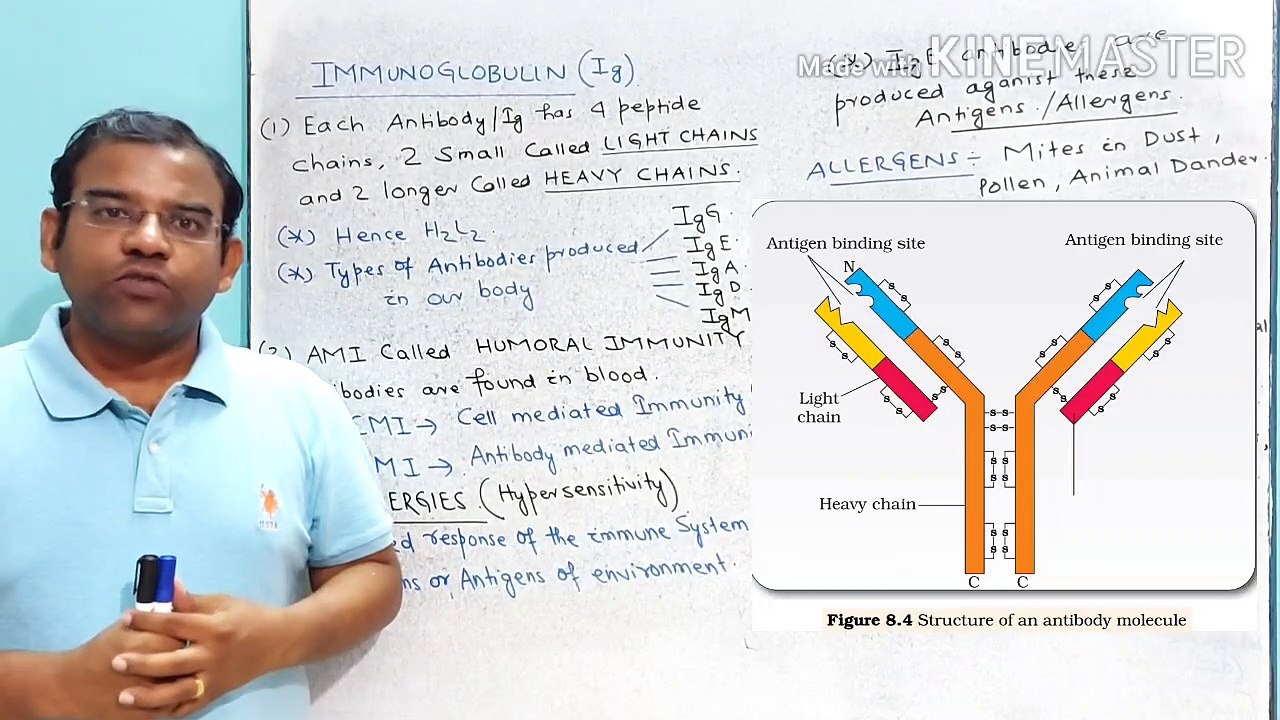 IMMUNOGLOBULIN (Ig)
(1) Each Antibody/Ig has 4 peptide
chains, 2 Small Called LIGHT CHAINS
and 2 longer Called HEAVY CHAINS.
(x) Hence H2L2.
(x) Types of Antibodies produced
in our body
IgG.
IgE.
IgA.
IgD.
IgM
AMI Called HUMORAL IMMUNITY
bodies are found in blood.
CMI → Cell mediated Immunity
MI → Antibody mediated Immuni
ERGIES (Hypersensitivity)
ed response of the immune System
ns or Antigens of environment.
(x) IgE antibodies are
produced aganist these
Antigens /Allergens.
ALLERGENS :- Mites in Dust,
Pollen, Animal Dander.
Made with KINEMASTER
Antigen binding site
Antigen binding site
N
s s
s s
s s
s s
s s
s s
s s
s s
Light
chain
-s-s-
-s-s-
s s
s s
s s
s s
Heavy chain
C
C
Figure 8.4 Structure of an antibody molecule